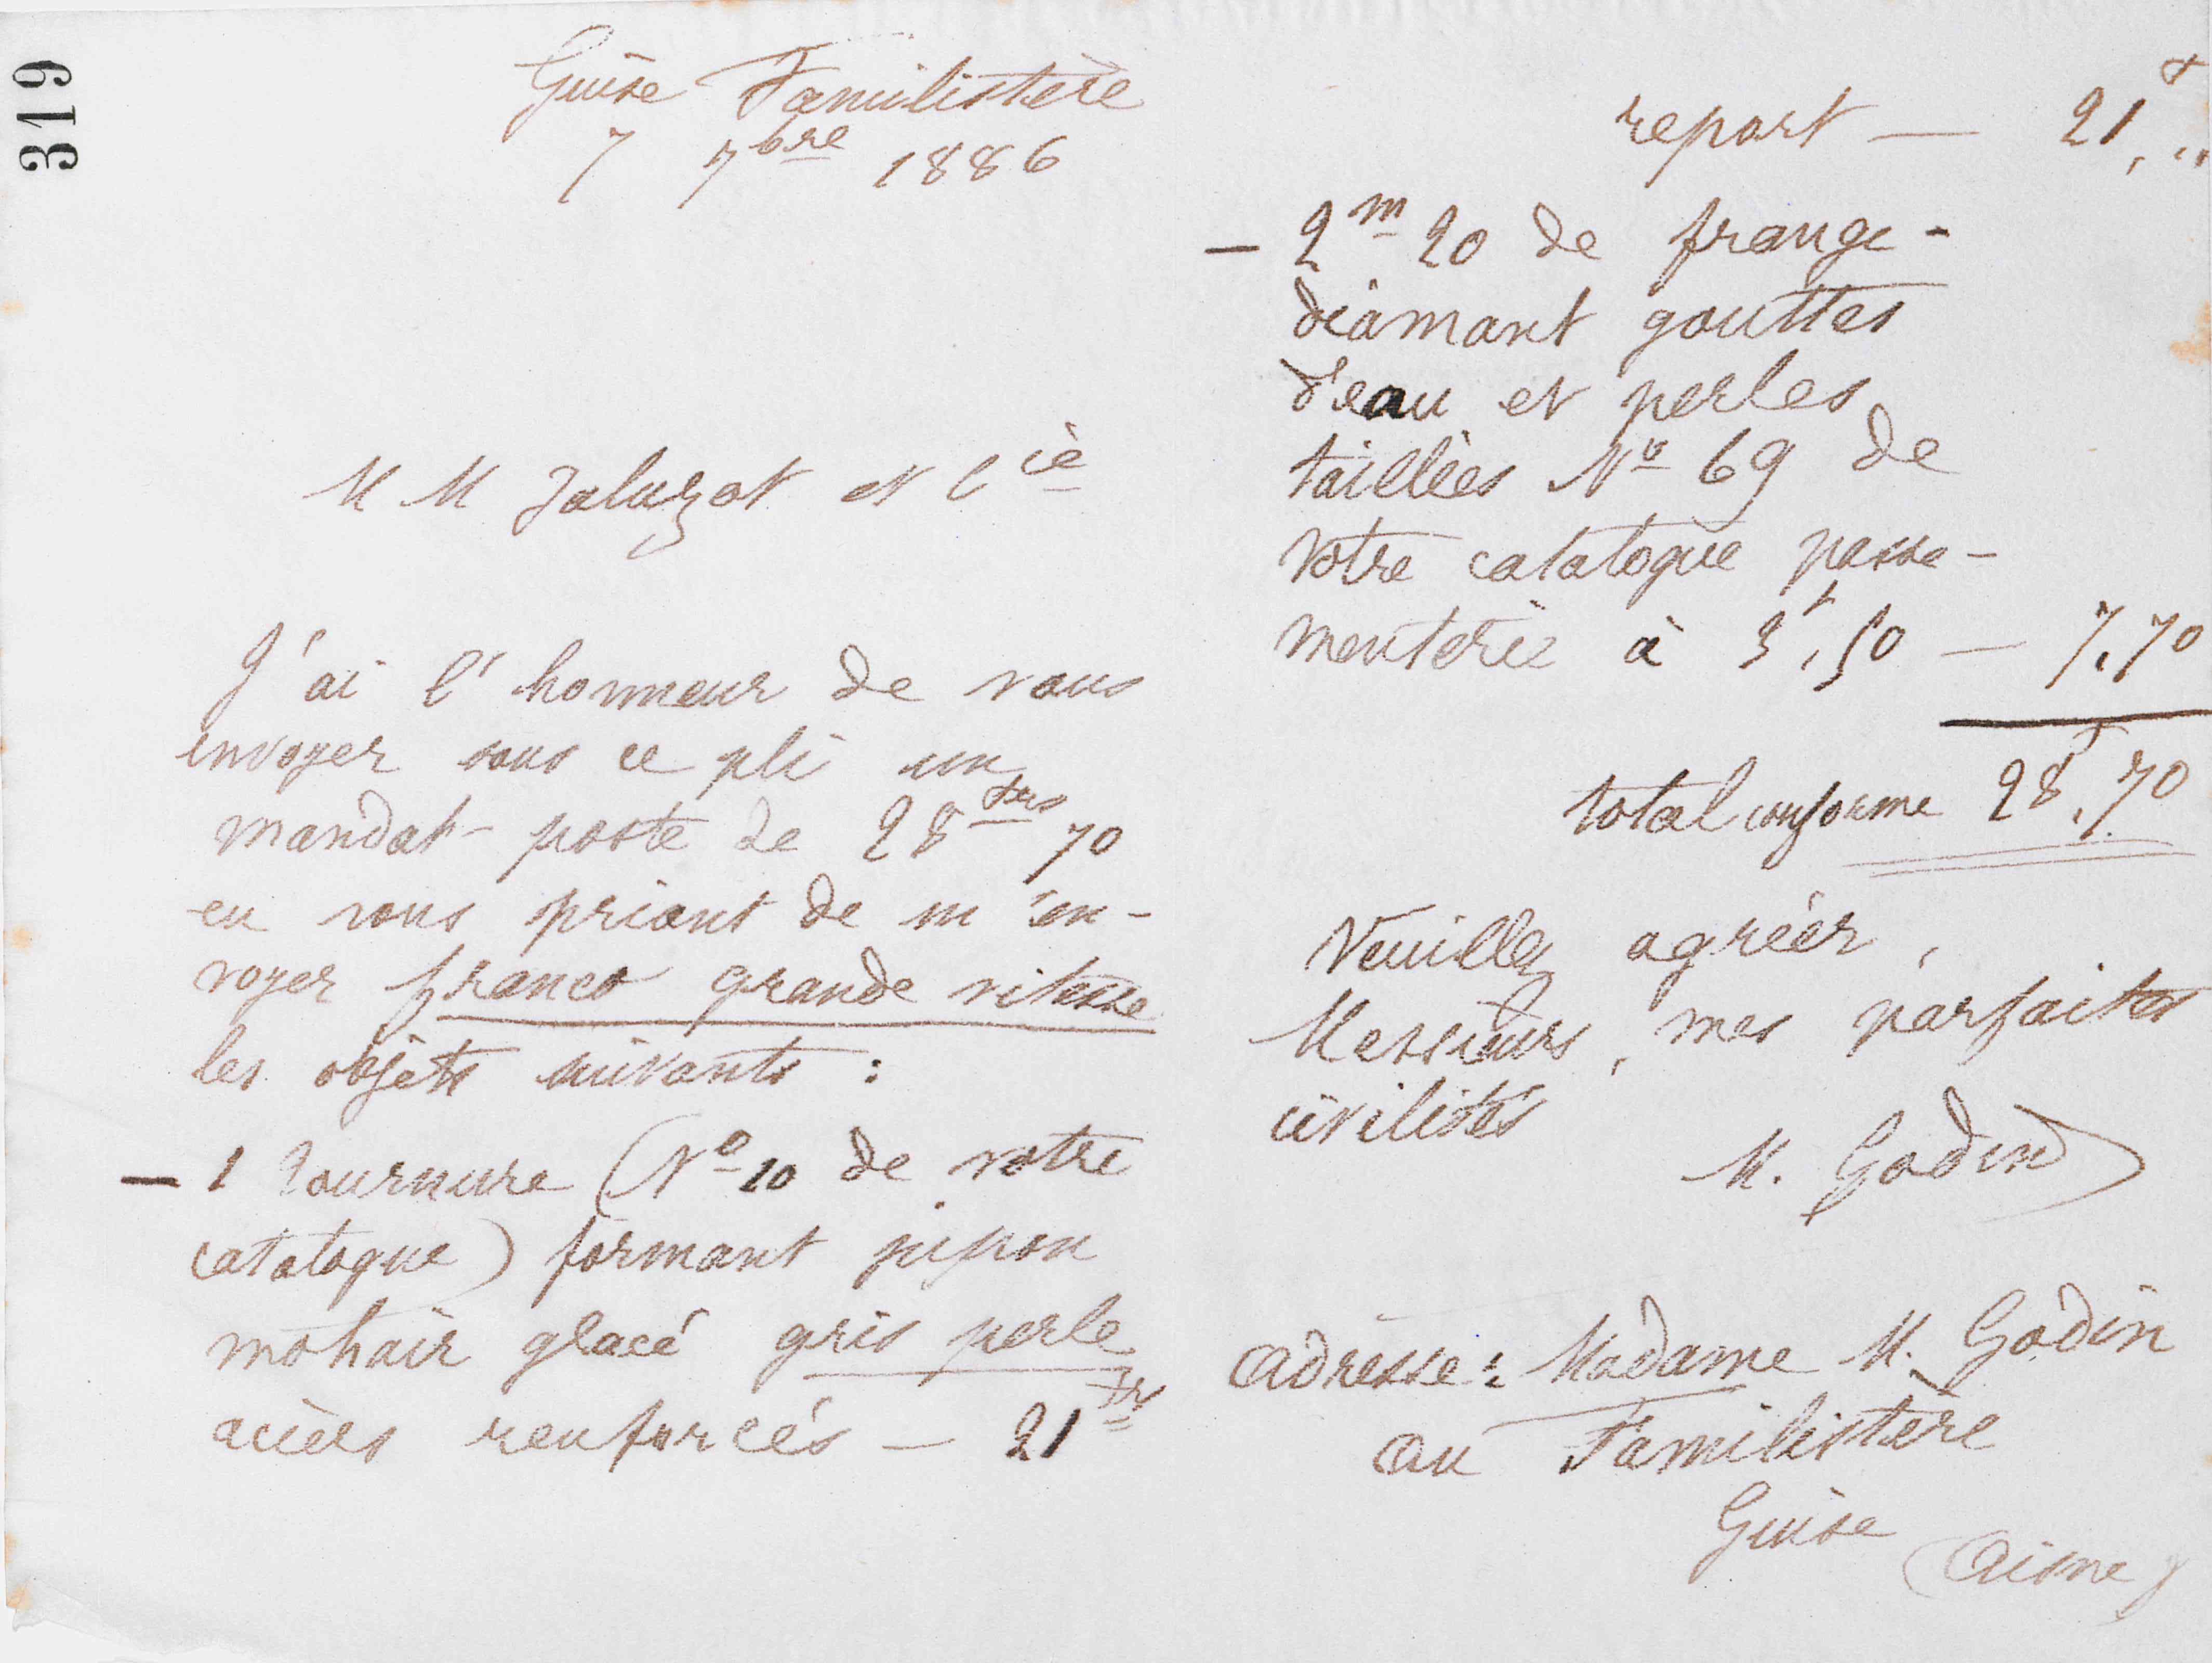 319
Guise Familistère
7 7bre 1886
MM Jaluzot et Cie
J'ai l'honneur de vous
envoyer sous ce pli un
mandat-poste de 28 frs 70
en vous priant de m'en-
voyer franco grande vitesse
les objets suivants :
— 1 tournure (No 10 de votre
catalogue) formant jupon
mohair glacé gris perle
aciers renforcés — 21 frs
report — 21 f, "
— 2m 20 de frange-
diamant gouttes
d'eau et perles
taillées No 69 de
votre catalogue passe-
menterie à 3f,50 — 7,70
total conforme 28f,70
Veuillez agréer,
Messieurs, mes parfaites
civilités
M. Godin
Adresse : Madame M. Godin
au Familistère
Guise
(Aisne)